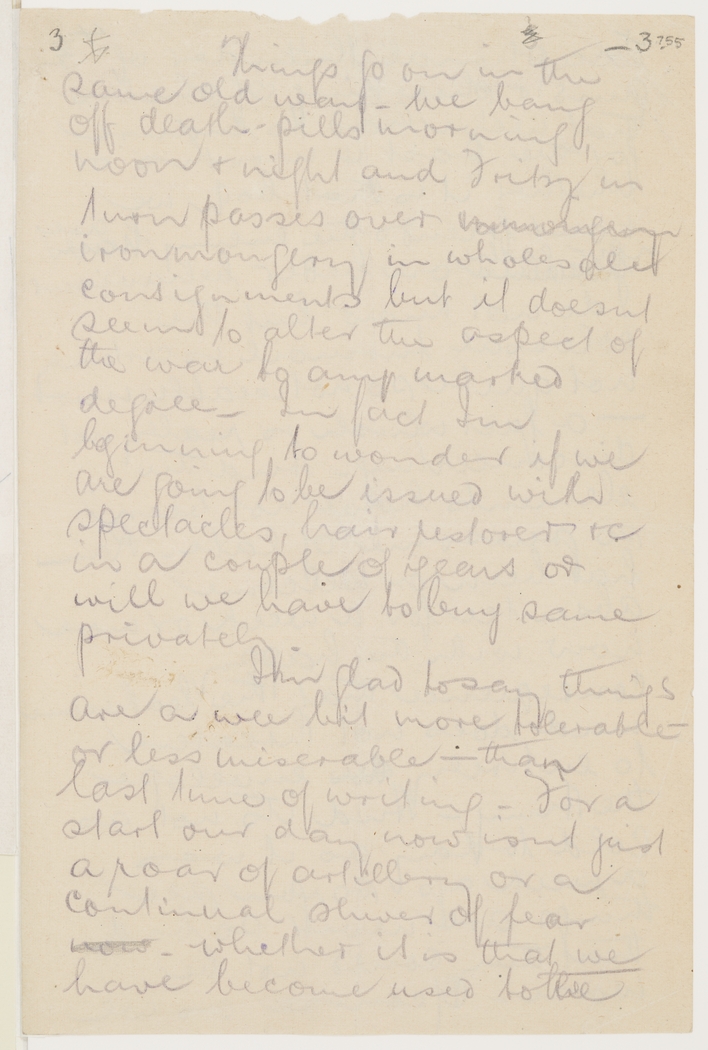 3 — 3755
Things go on in the
same old way - We bang
off death-pills morning,
noon + night and Fritz in
turn passes over
ironmongery in wholesale
consignments but it doesnt
seem to alter the aspect of
the war to any marked
degree - In fact Im
bginning to wonder if we
are going to be issued with
spectacles, hair restorer &c
in a couple of years or
will we have to buy same
privately.
Im glad to say things
are a wee bit more tolerable -
or less miserable - than
last time of writing - For a
start our day now isnt just
a roar of artillery or a
continual shiver of fear
now - whether it is that we
have become used to the